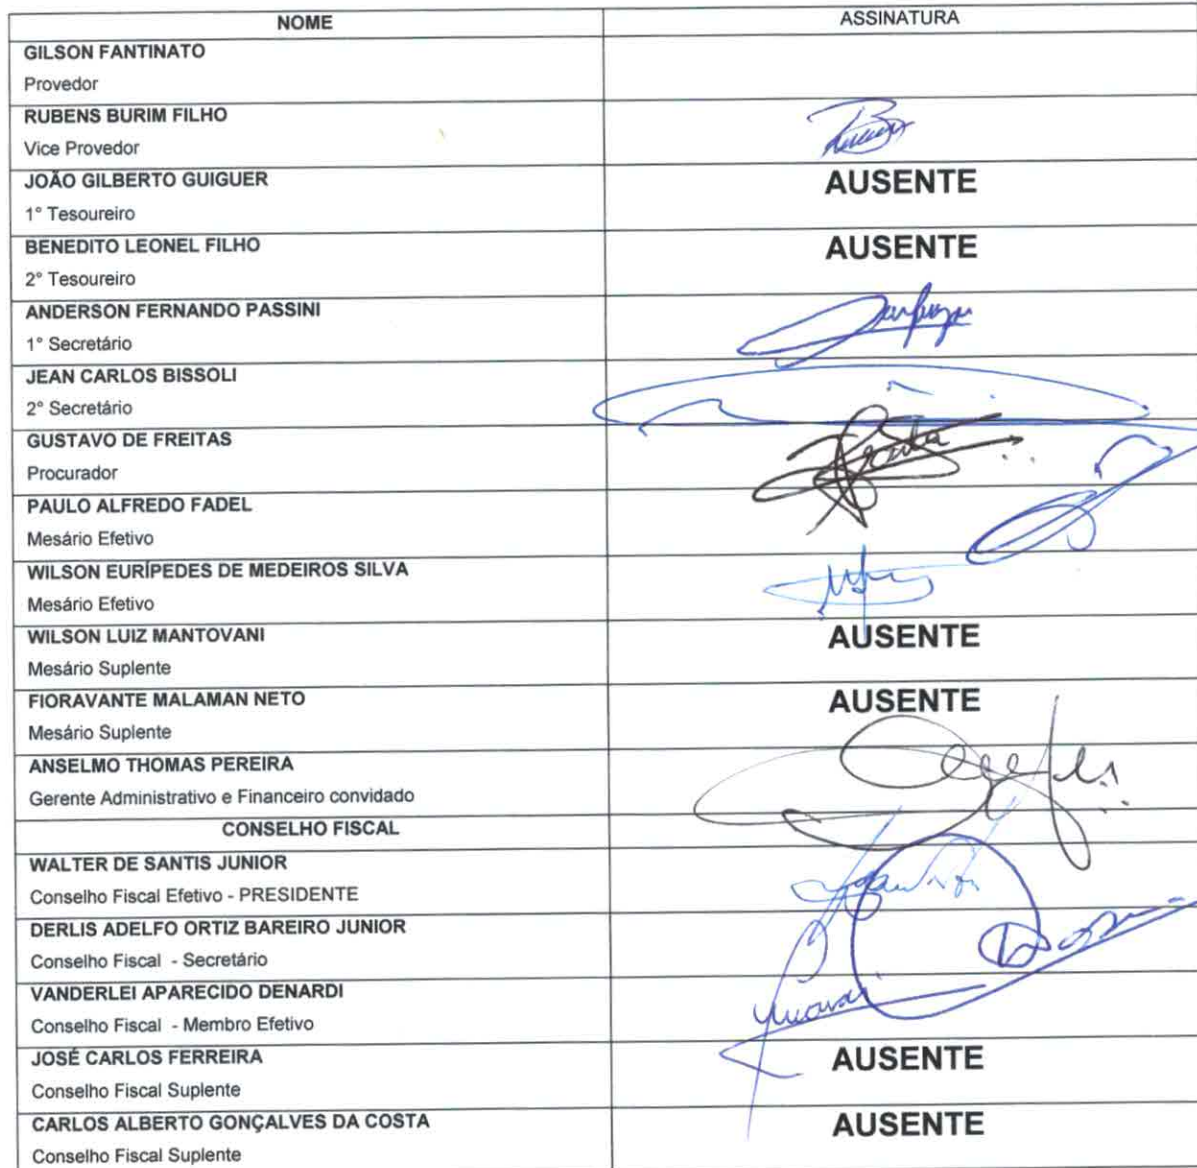 NOME ASSINATURA
GILSON FANTINATO
Provedor
RUBENS BURIM FILHO
Vice Provedor
JOÃO GILBERTO GUIGUER AUSENTE
1° Tesoureiro
BENEDITO LEONEL FILHO AUSENTE
2° Tesoureiro
ANDERSON FERNANDO PASSINI
1° Secretário
JEAN CARLOS BISSOLI
2° Secretário
GUSTAVO DE FREITAS
Procurador
PAULO ALFREDO FADEL
Mesário Efetivo
WILSON EURÍPEDES DE MEDEIROS SILVA
Mesário Efetivo
WILSON LUIZ MANTOVANI AUSENTE
Mesário Suplente
FIORAVANTE MALAMAN NETO AUSENTE
Mesário Suplente
ANSELMO THOMAS PEREIRA
Gerente Administrativo e Financeiro convidado
CONSELHO FISCAL
WALTER DE SANTIS JUNIOR
Conselho Fiscal Efetivo - PRESIDENTE
DERLIS ADELFO ORTIZ BAREIRO JUNIOR
Conselho Fiscal - Secretário
VANDERLEI APARECIDO DENARDI
Conselho Fiscal - Membro Efetivo
JOSÉ CARLOS FERREIRA AUSENTE
Conselho Fiscal Suplente
CARLOS ALBERTO GONÇALVES DA COSTA AUSENTE
Conselho Fiscal Suplente